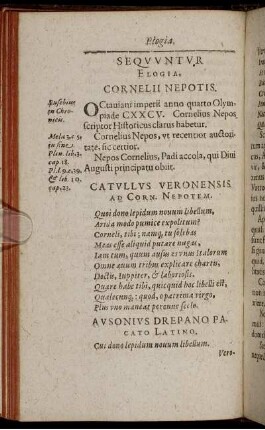 Elogia.
SEQVVNTVR
ELOGIA.
CORNELII NEPOTIS.
Eusebius
in Chro-
nicis.
OCtauiani imperii anno quarto Olym-
piade CXXCV. Cornelius Nepos
scriptor Historicus clarus habetur.
Mela 3.5.
in fine.
Cornelius Nepos, vt recentior auctori-
tate, sic certior.
Plin. lib. 3.
cap. 18.
Pl. 9. c. 39.
& lib. 10.
cap. 23.
Nepos Cornelius, Padi accola, qui Diui
Augusti principatu obiit.
CATVLLVS VERONENSIS
AD CORN. NEPOTEM.
Quoi dono lepidum nouum libellum,
Arida modo pumice expolitum?
Corneli, tibi; namq, tu solebas
Meas esse aliquid putare nugas,
Iam tum, quum ausus es vnus Italorum
Omne æuum tribus explicare chartis,
Doctis, Iuppiter, & laboriosis.
Quare habe tibi, quicquid hoc libelli est,
Qualecunq;: quod, o patrona virgo,
Plus vno maneat perenne seclo.
AVSONIVS DREPANO PA-
CATO LATINO.
Cui dono lepidum nouum libellum.
Vero-